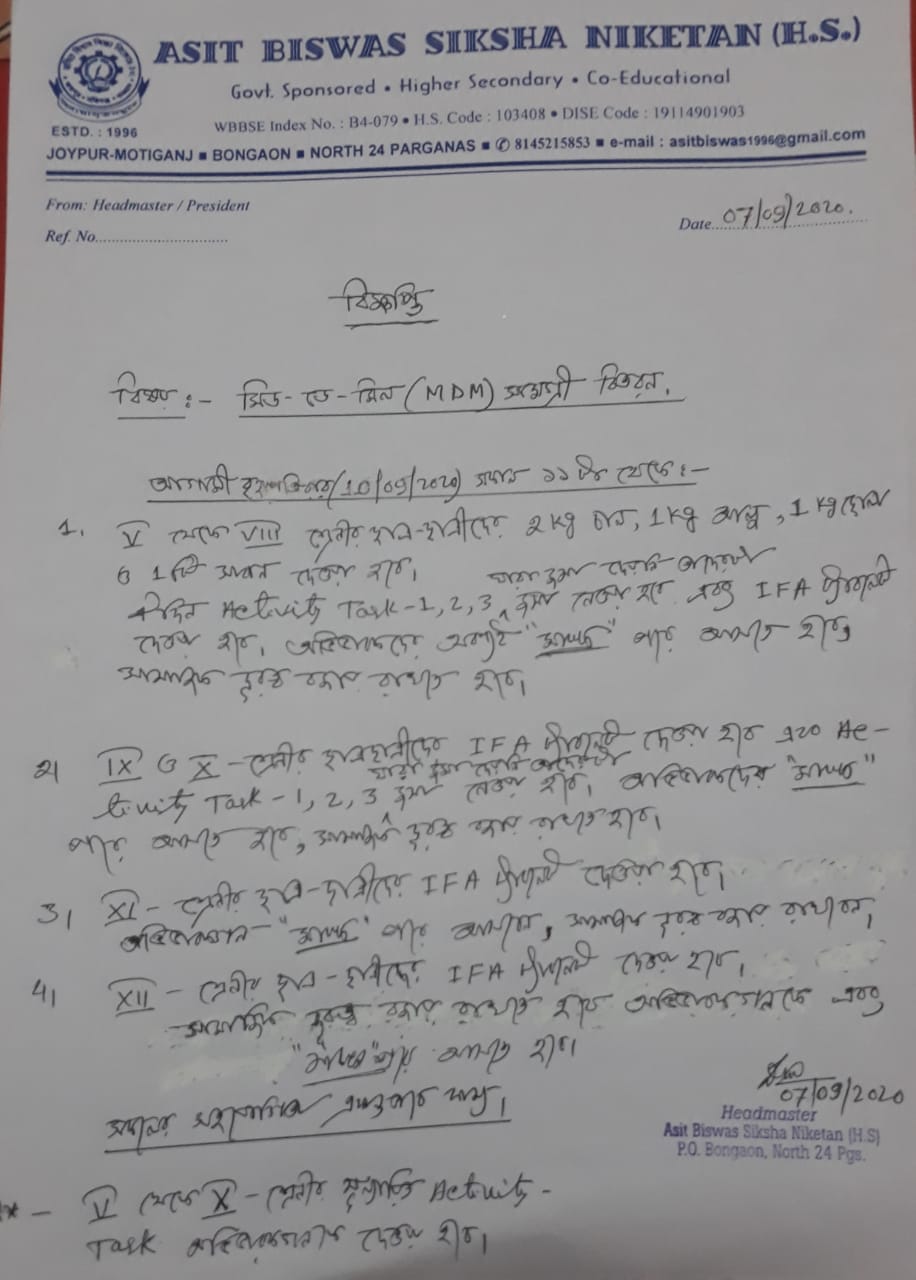 ASIT BISWAS SIKSHA NIKETAN (H.S.)
Govt. Sponsored • Higher Secondary • Co-Educational
WBBSE Index No. : B4-079 • H.S. Code : 103408 • DISE Code : 19114901903
ESTD. : 1996
JOYPUR-MOTIGANJ ■ BONGAON ■ NORTH 24 PARGANAS ■ ✆ 8145215853 ■ e-mail : asitbiswas1996@gmail.com
From: Headmaster / President
Ref. No..............................
Date...07/09/2020.
বিজ্ঞপ্তি
বিষয় :- মিড-ডে-মিল (MDM) সামগ্রী বিতরন.
আগামী বৃহস্পতিবার (10/09/2020) সকাল ১১ টা থেকে :-
1. V থেকে VIII শ্রেনীর ছাত্র-ছাত্রীদের 2 kg চাল, 1 kg আলু, 1 kg ছোলা
ও 1 টি সাবান দেওয়া হবে।
যারা জমা দেয়নি তাদের
ঐদিন Activity Task-1, 2, 3 জমা নেওয়া হবে এবং IFA ট্যাবলেট
দেওয়া হবে। অভিভাবকদের অবশ্যই "মাস্ক" পরে আসতে হবে,
সামাজিক দূরত্ব বজায় রাখতে হবে।
২। IX ও X - শ্রেনীর ছাত্রছাত্রীদের IFA ট্যাবলেট দেওয়া হবে এবং Ac-
যারা জমা দেয়নি তাদের
tivity Task - 1, 2, 3 জমা নেওয়া হবে। অভিভাবকদের "মাস্ক"
পরে আসতে হবে, সামাজিক দূরত্ব বজায় রাখতে হবে।
3। XI - শ্রেনীর ছাত্র-ছাত্রীদের IFA ট্যাবলেট দেওয়া হবে।
অভিভাবকগন "মাস্ক" পরে আসবেন, সামাজিক দূরত্ব বজায় রাখবেন।
4। XII - শ্রেনীর ছাত্র-ছাত্রীদের IFA ট্যাবলেট দেওয়া হবে।
সামাজিক দূরত্ব বজায় রাখতে হবে অভিভাবকগনকে এবং
"মাস্ক" পরে আসতে হবে।
সকলের সহযোগিতা একান্তভাবে কাম্য।
07/09/2020
Headmaster
Asit Biswas Siksha Niketan (H.S)
P.O. Bongaon, North 24 Pgs.
* - V থেকে X - শ্রেনীর Activity -
Task অভিভাবকগনকে দেওয়া হবে।